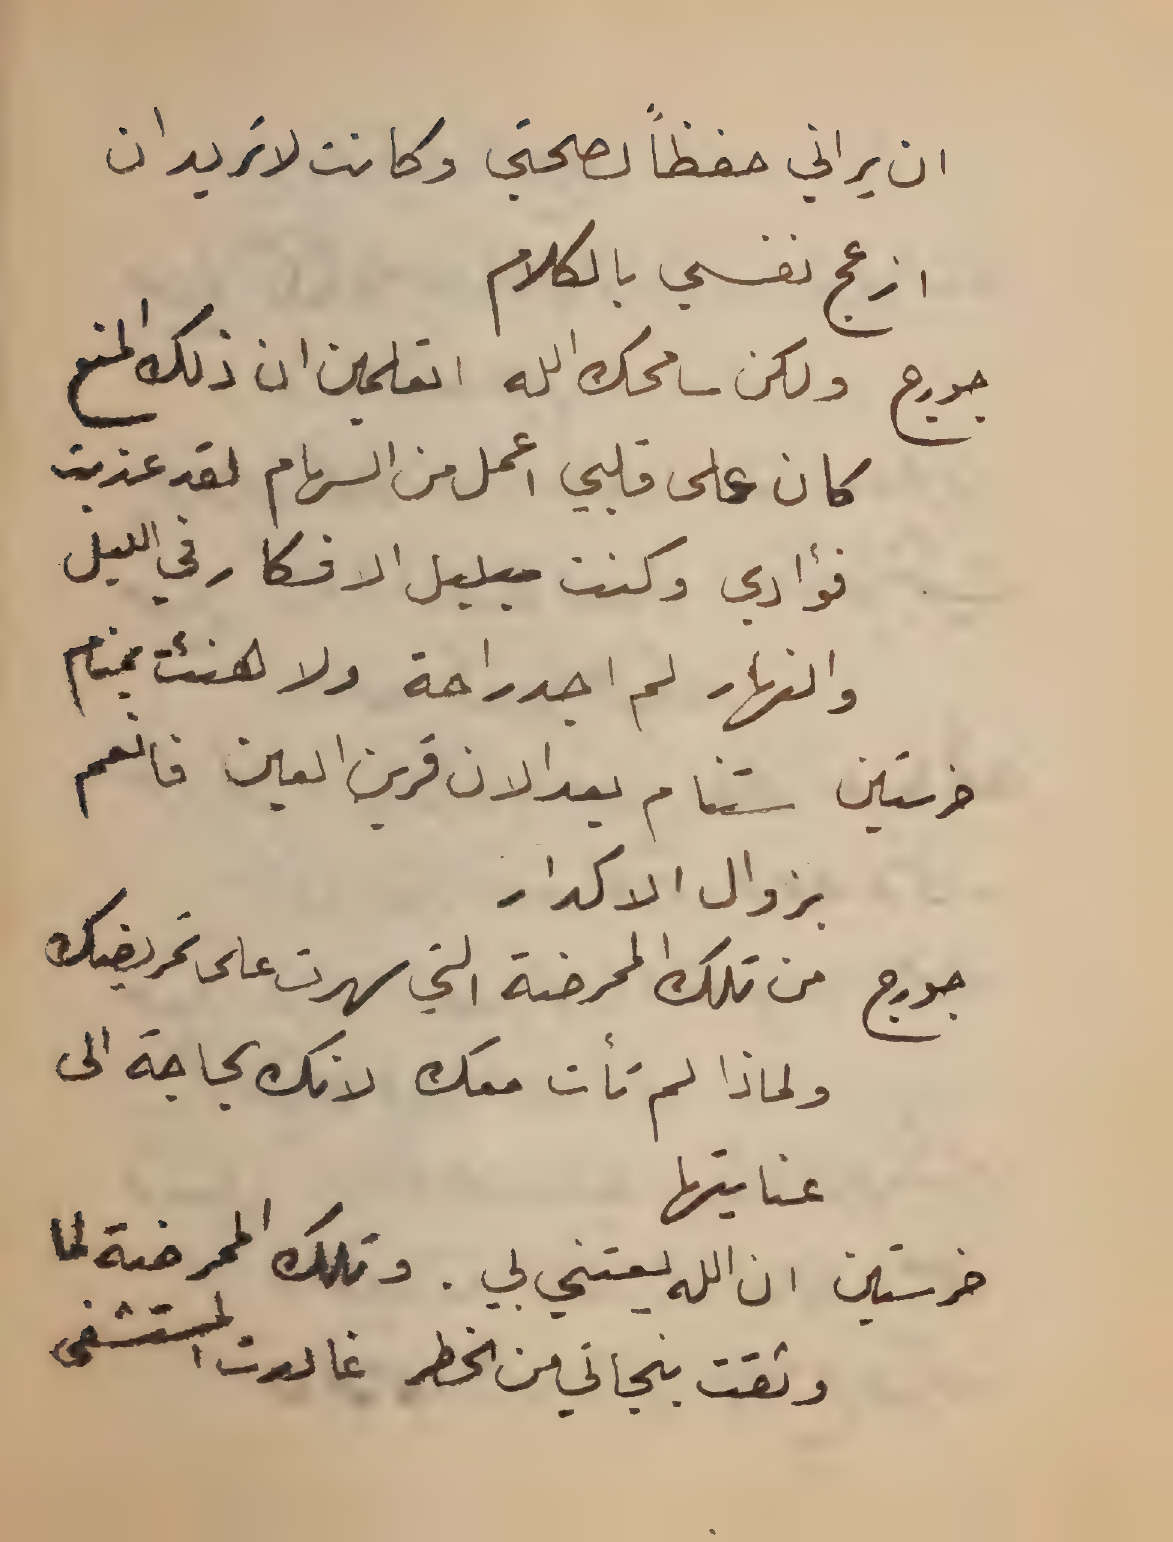 ان يراني حفظاً لصحتي وكانت لا تريد ان
ازعج نفسي بالكلام
جورج ولكن سامحك الله اتعلمين ان ذلك المنع
كان على قلبي اعمل من السهام لقد عذبت
فؤادي وكنت مبلبل الافكار في الليل
والنهار لم اجد راحة ولا هنئت بمنام
خرستين ستنام بعد الان قرين العين فانعم
بزوال الاكدار
جورج من تلك الممرضة التي سهرت على تمريضك
ولماذا لم تأت معك لانك بحاجة الى
عنايتها
خرستين ان الله يعتني بي . وتلك الممرضة لما
وثقت بنجاتي من الخطر غادرت المستشفى